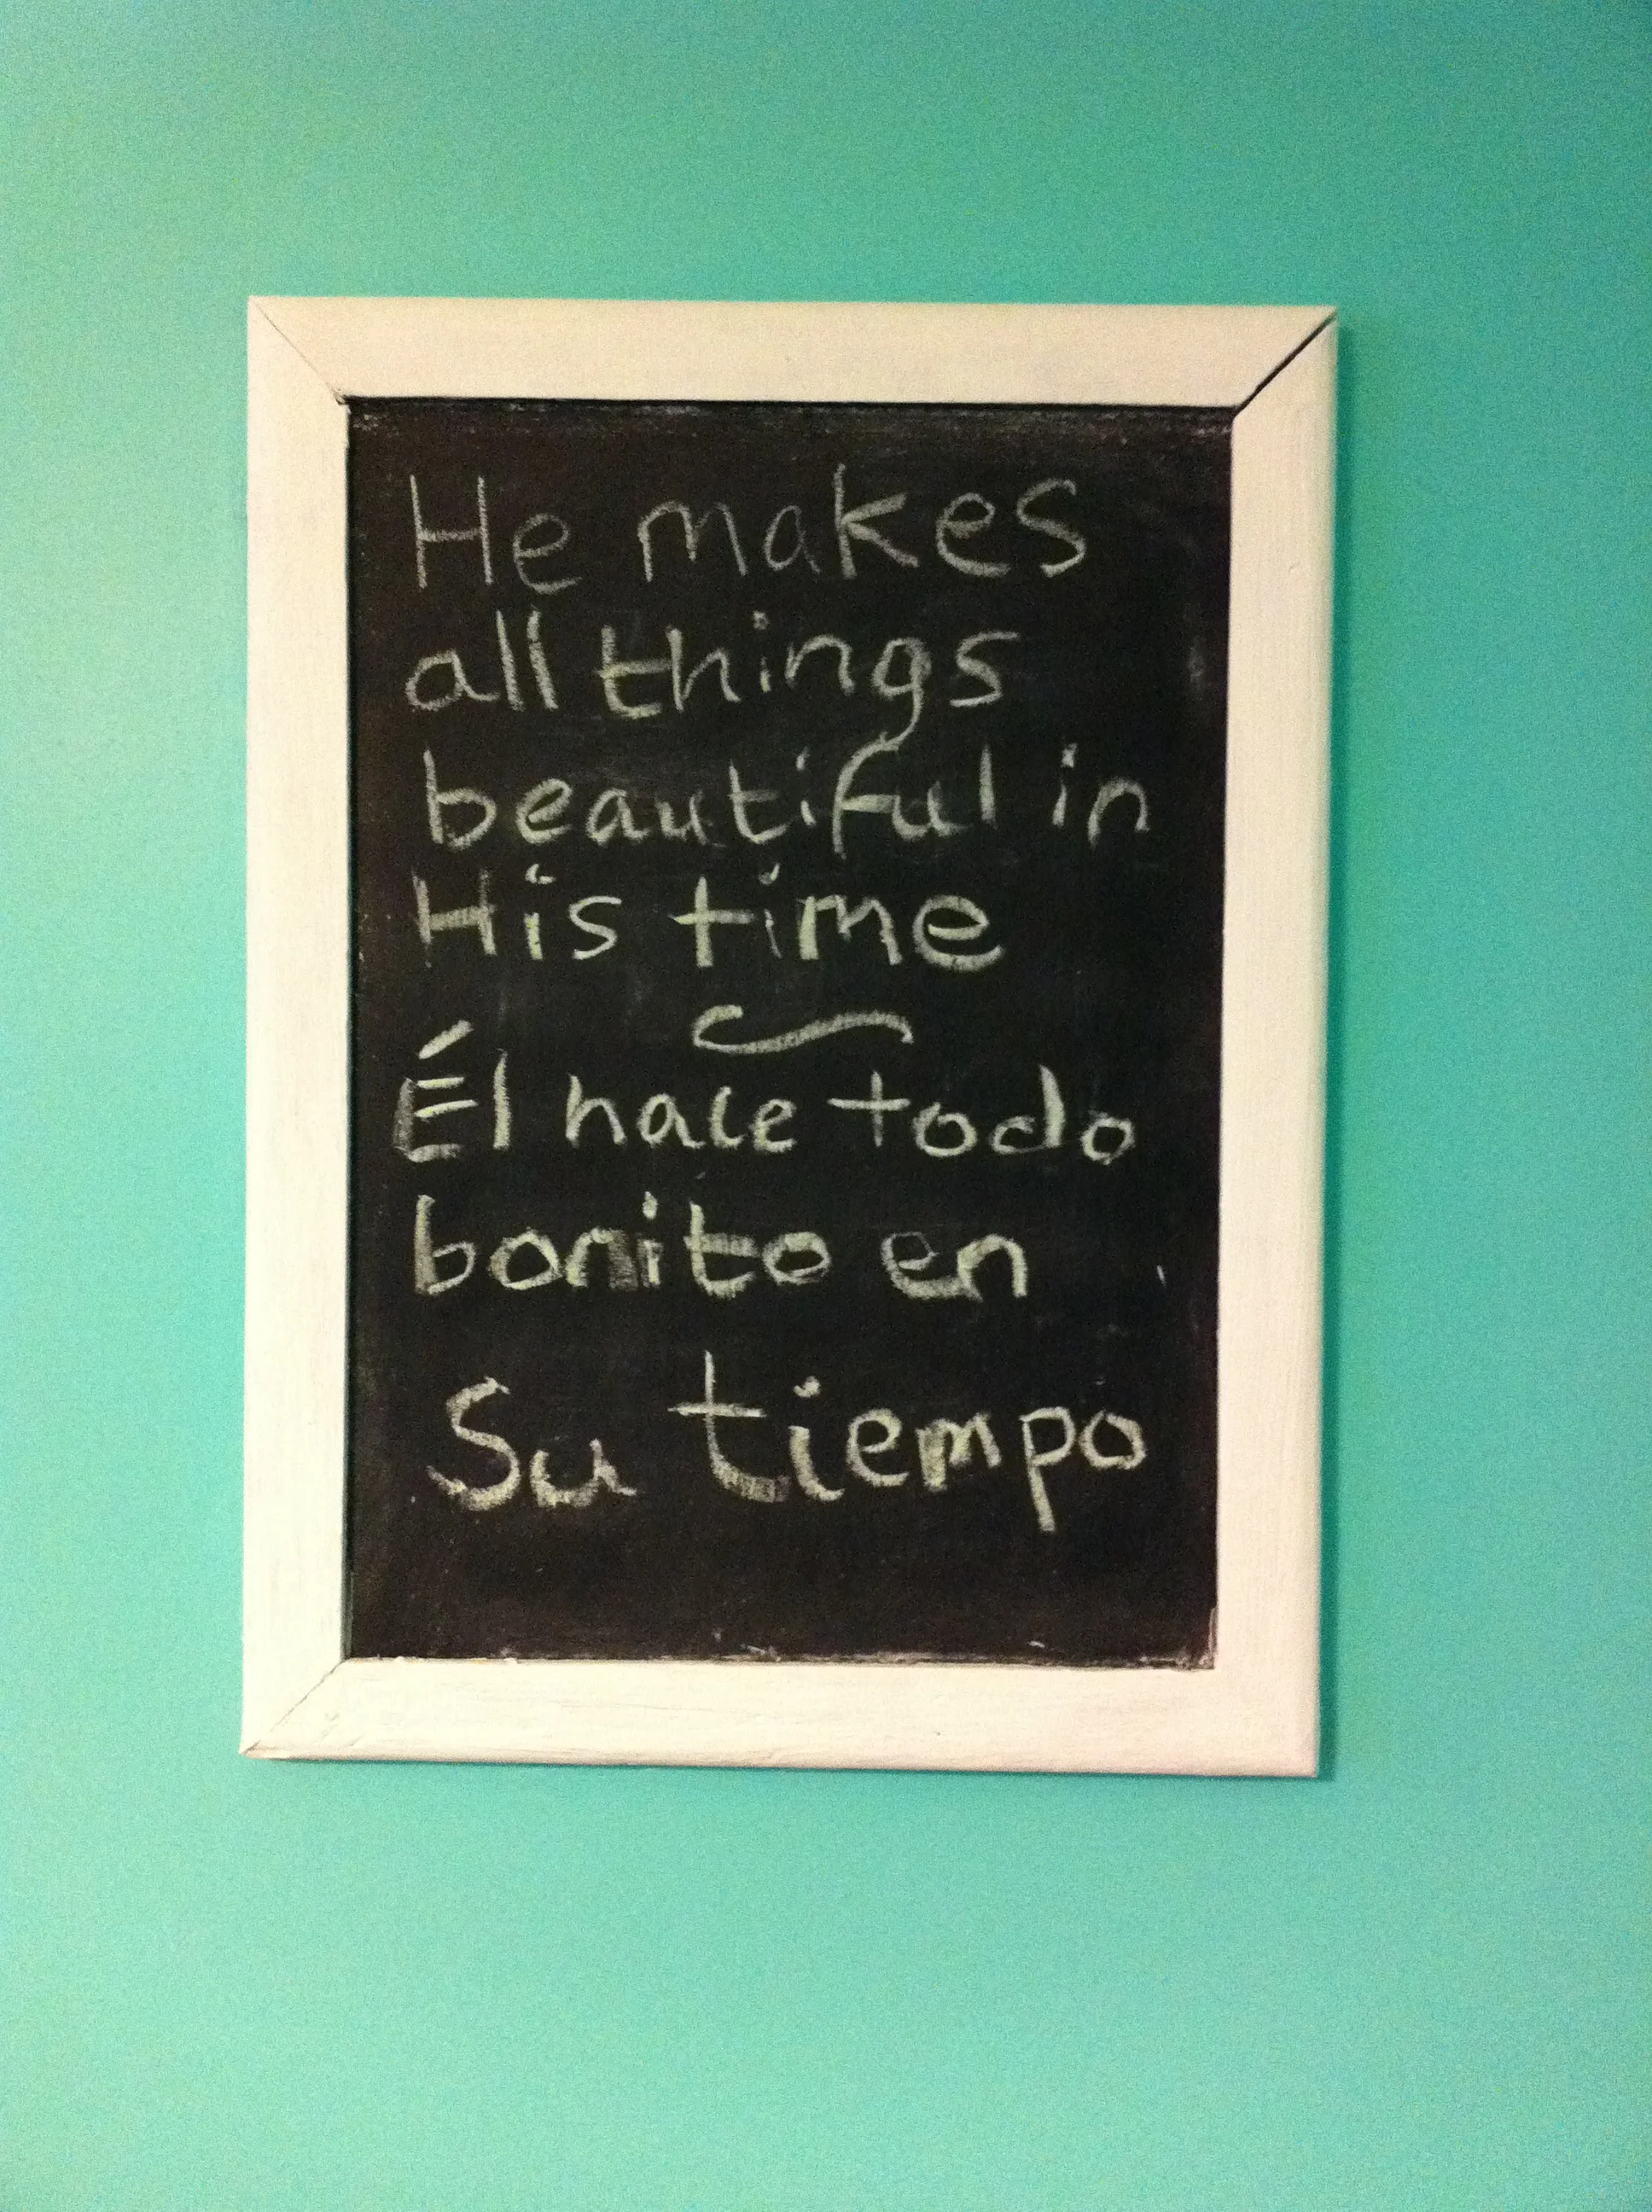 He makes
all things
beautiful in
His time
~
Él hace todo
bonito en
Su tiempo